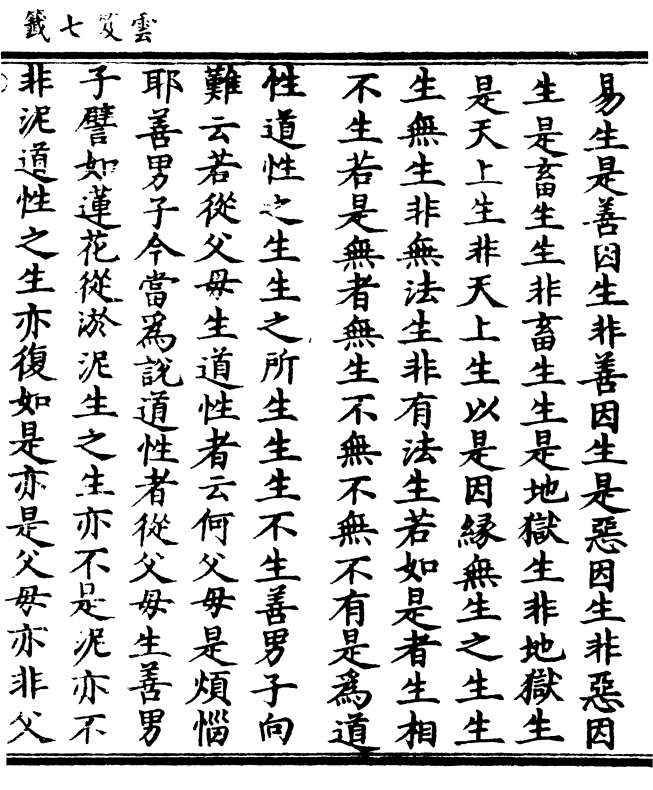 雲笈七籤
易生是善因生非善因生是惡因生非惡因
生是畜生生非畜生生是地獄生非地獄生
是天上生非天上生以是因緣無生之生生
生無生非無法生非有法生若如是者生相
不生若是無者無生不無不無不有是爲道
性道性之生生之所生生生不生善男子向
難云若從父母生道性者云何父母是煩惱
耶善男子今當爲說道性者從父母生善男
子譬如蓮花從淤泥生之生亦不是泥亦不
非泥道性之生亦復如是亦是父母亦非父